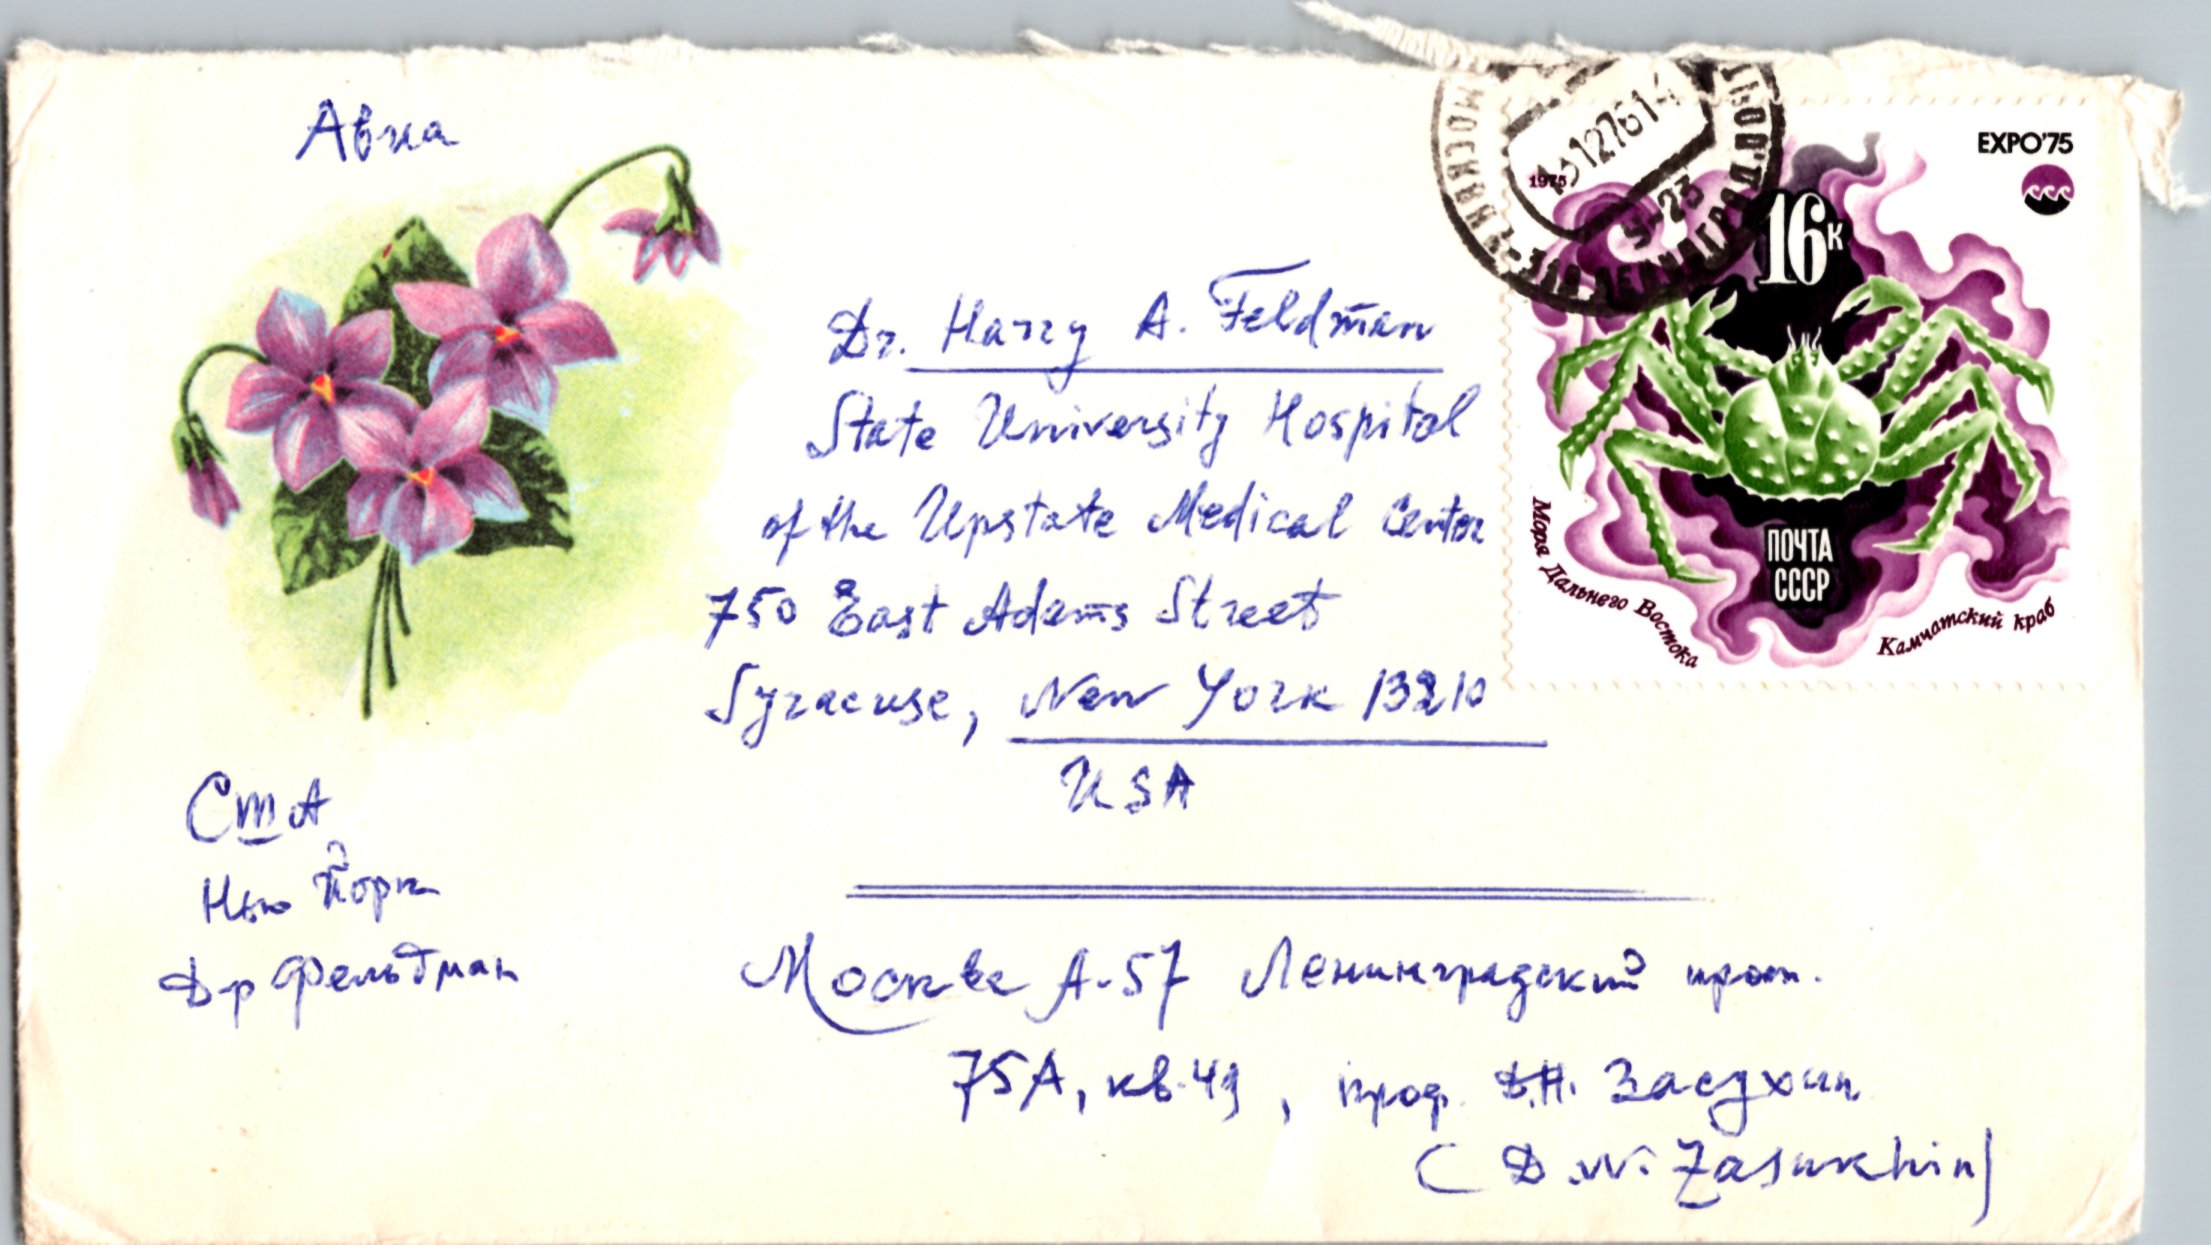 Авиа
EXPO'75
1975
16к
ПОЧТА
СССР
Моря Дальнего Востока
Камчатский краб
МОСКВА
Dr. Harry A. Feldman
State University Hospital
of the Upstate Medical Center
750 East Adams Street
Syracuse, New York 13210
USA
США
Нью Йорк
Др Фельдман
Москва А-57 Ленинградский просп.
75А, кв. 49, проф. Д.Н. Засухин
(D.N. Zasukhin)